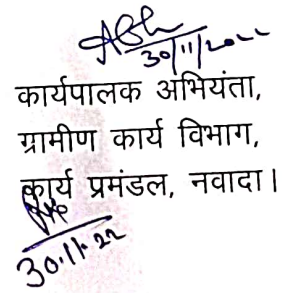 30/11/2022
कार्यपालक अभियंता,
ग्रामीण कार्य विभाग,
कार्य प्रमंडल, नवादा।
30.11.22